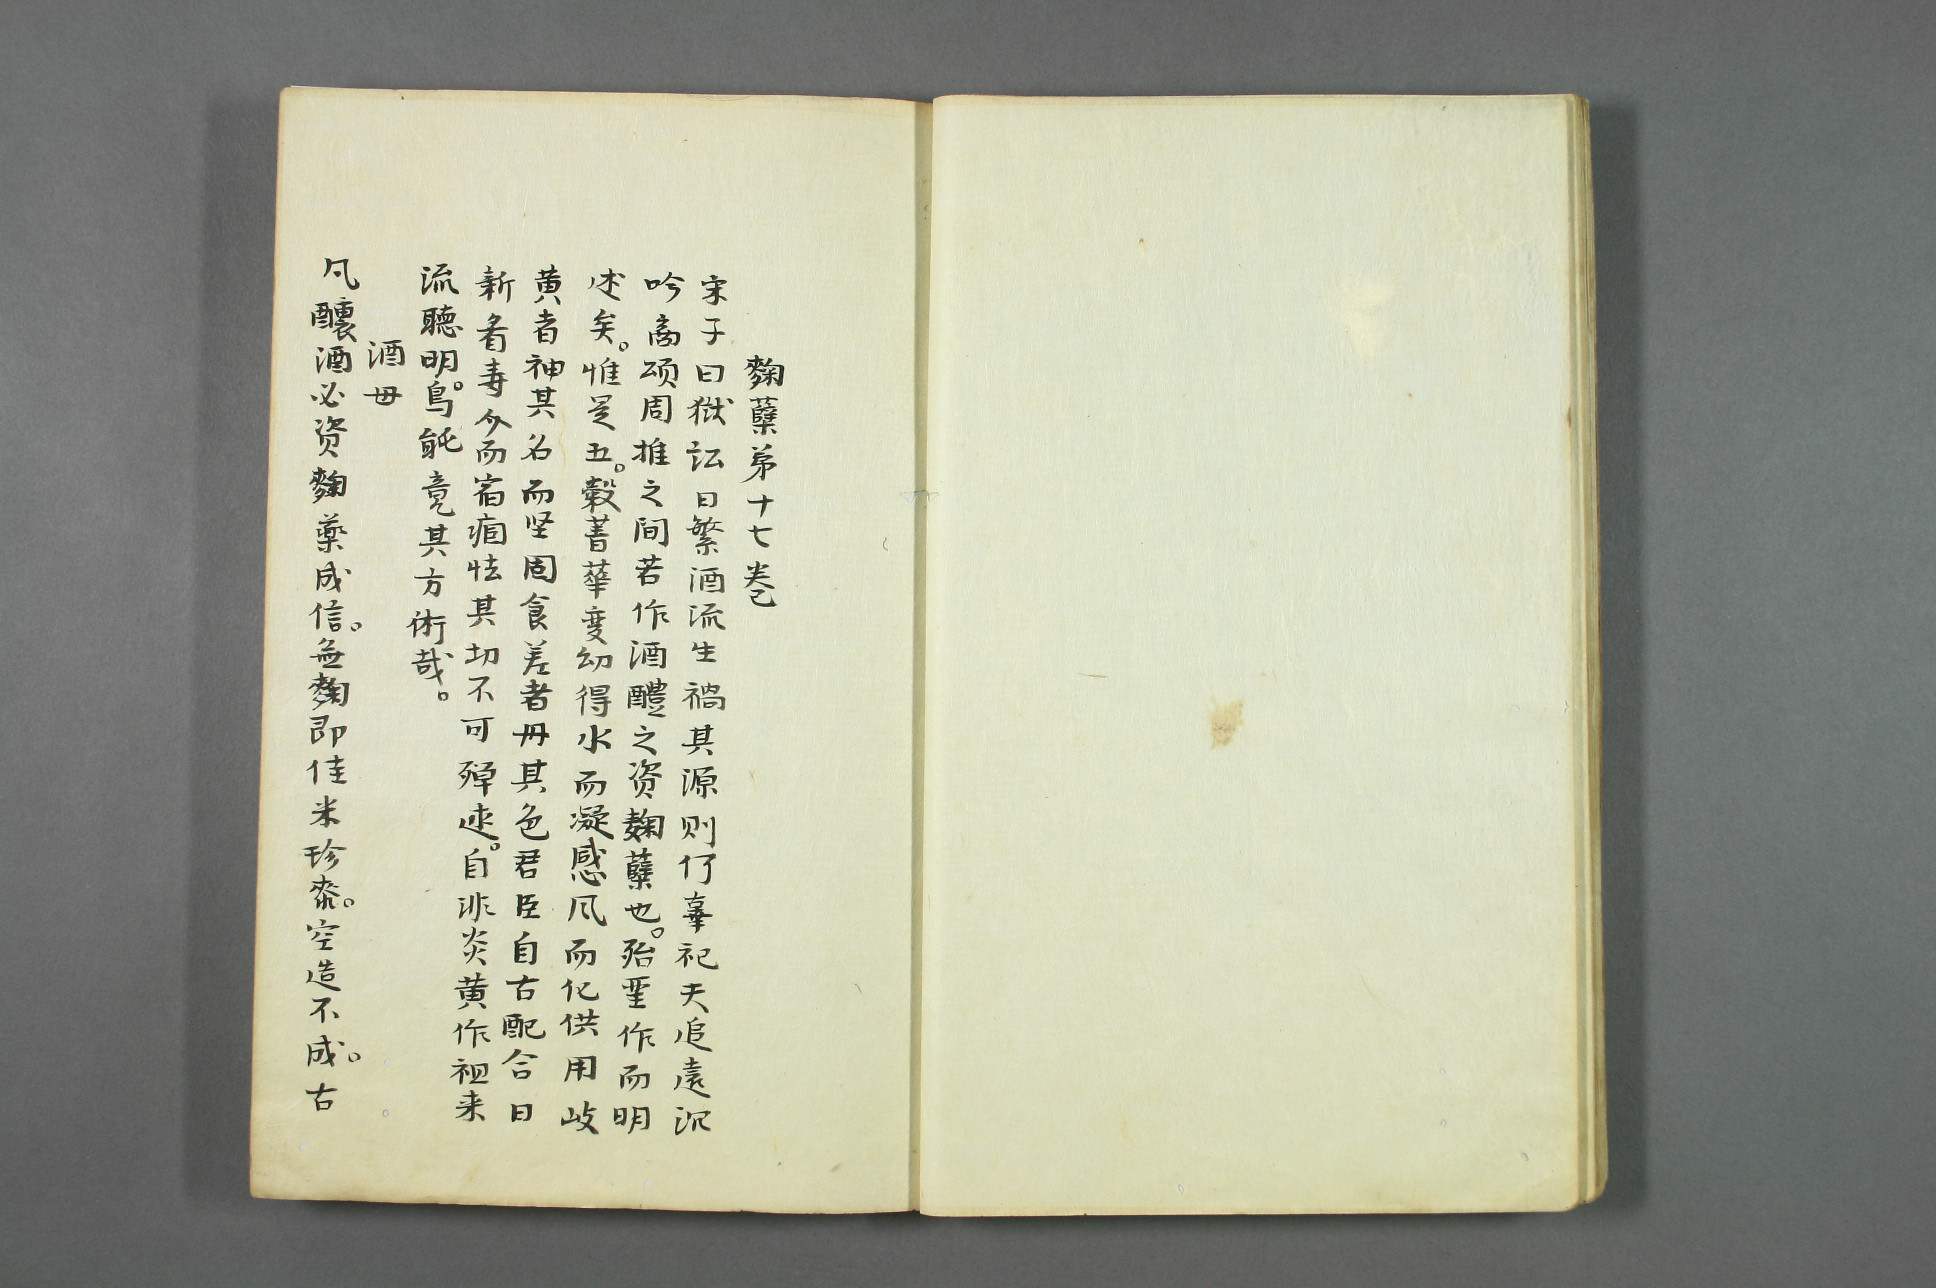 麴蘖弟十七卷
宋子曰獄訟日繁酒流生禍其源則何辜祀夫追遠沉
吟商頌周推之間若作酒醴之资麴蘖也。殆聖作而明
述矣。惟是五。穀菁華变幻得水而凝感风而化供用岐
黄者神其名而坚固食羞者丹其色君臣自古配合日
新眉寿介而宿痼怯其切不可殫述。自非炎黄作祖来
流聰明。鳥能竟其方術哉。
酒毋
凡釀酒必资麴藥成信。無麴即佳米珍黍。空造不成。古